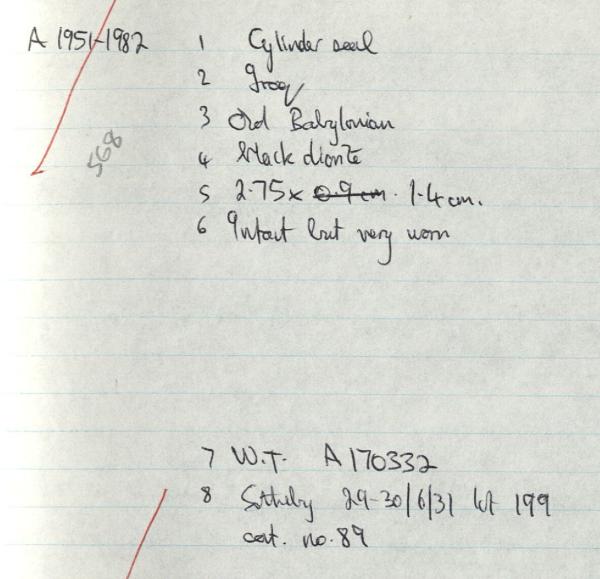 A 1951-1982 1 Cylinder seal
2 Iraq
568
3 Old Babylonian
4 black diorite
5 2.75 x 0.9 cm. 1.4 cm.
6 Intact but very worn
7 W.T. A 170332
8 Sotheby 29-30/6/31 lot 199
cat. no. 89